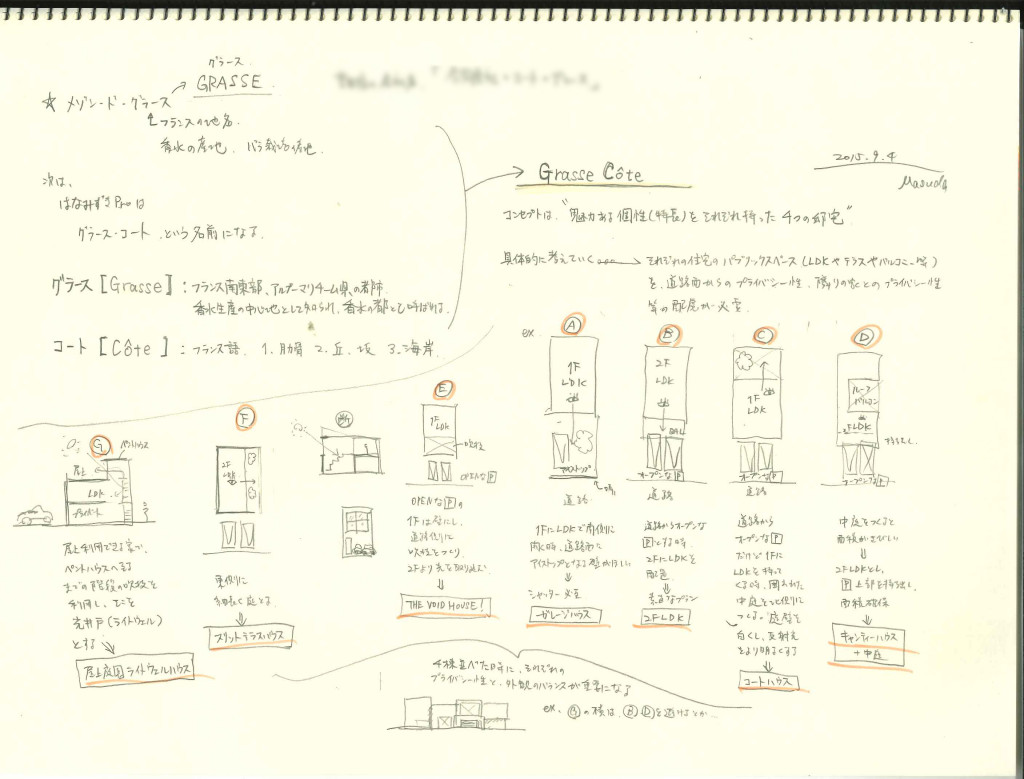 グラース
GRASSE
☆ メゾン・ド・グラース
フランスの地名
香水の産地、バラ栽培の産地
次は、
はなみずきProは
グラース・コート という名前になる
グラース [Grasse] : フランス南東部、アルプ=マリティーム県の都市
香水生産の中心地として知られ、香水の都とも呼ばれる
コート [Côte] : フランス語 1. 肋骨 2. 丘、坂 3. 海岸
2015.9.4
Masuda
Grasse Côte
コンセプトは、"魅力ある個性(特長)をそれぞれ持った4つの邸宅"
具体的に考えていく
それぞれの住宅のパブリックスペース(LDKやテラスやバルコニー等)
を、道路面からのプライバシー性、隣りの家とのプライバシー性
等の配慮が必要
ex.
A
1F
LDK
アイストップ
道路
1FにLDKで南側に
開く時、道路面に
アイストップとなる壁がほしい
シャッター必要
ガレージハウス
B
2F
LDK
BAL
オープンなP
道路
道路からオープンな
Pとする時
2FにLDKを
配置
素直なプラン
2FLDK
C
1F
LDK
オープンなP
道路
道路から
オープンなP
だけど1Fに
LDKを持って
くる時、囲われた
中庭を北側に
つくる。庭壁を
白くし、反射光
をより明るくする
コートハウス
D
ルーフ
バルコニー
2FLDK
持ち出し
オープンなP
中庭をつくると
面積がきびしい
2FLDKとし、
P上部を持ち出し、
面積確保
キャンティーハウス
+中庭
E
1F
LDK
吹抜
OPENなP
OPENなPの
1Fは壁にし、
道路側に
吹抜をつくり、
2Fより光を取り込む
THE VOID HOUSE!
F
2F
LDK
東側に
細長く庭とる
スリットテラスハウス
G
ペントハウス
屋上
LDK
プライベート
屋上利用できる家で、
ペントハウスへ登る
までの階段の吹抜を
利用し、そこを
光井戸(ライトウェル)
とする
屋上庭園ライトウェルハウス
4棟並べた時に、それぞれの
プライバシー性と、外観のバランスが重要になる
ex. Gの横は、B、Dを避けるとか…